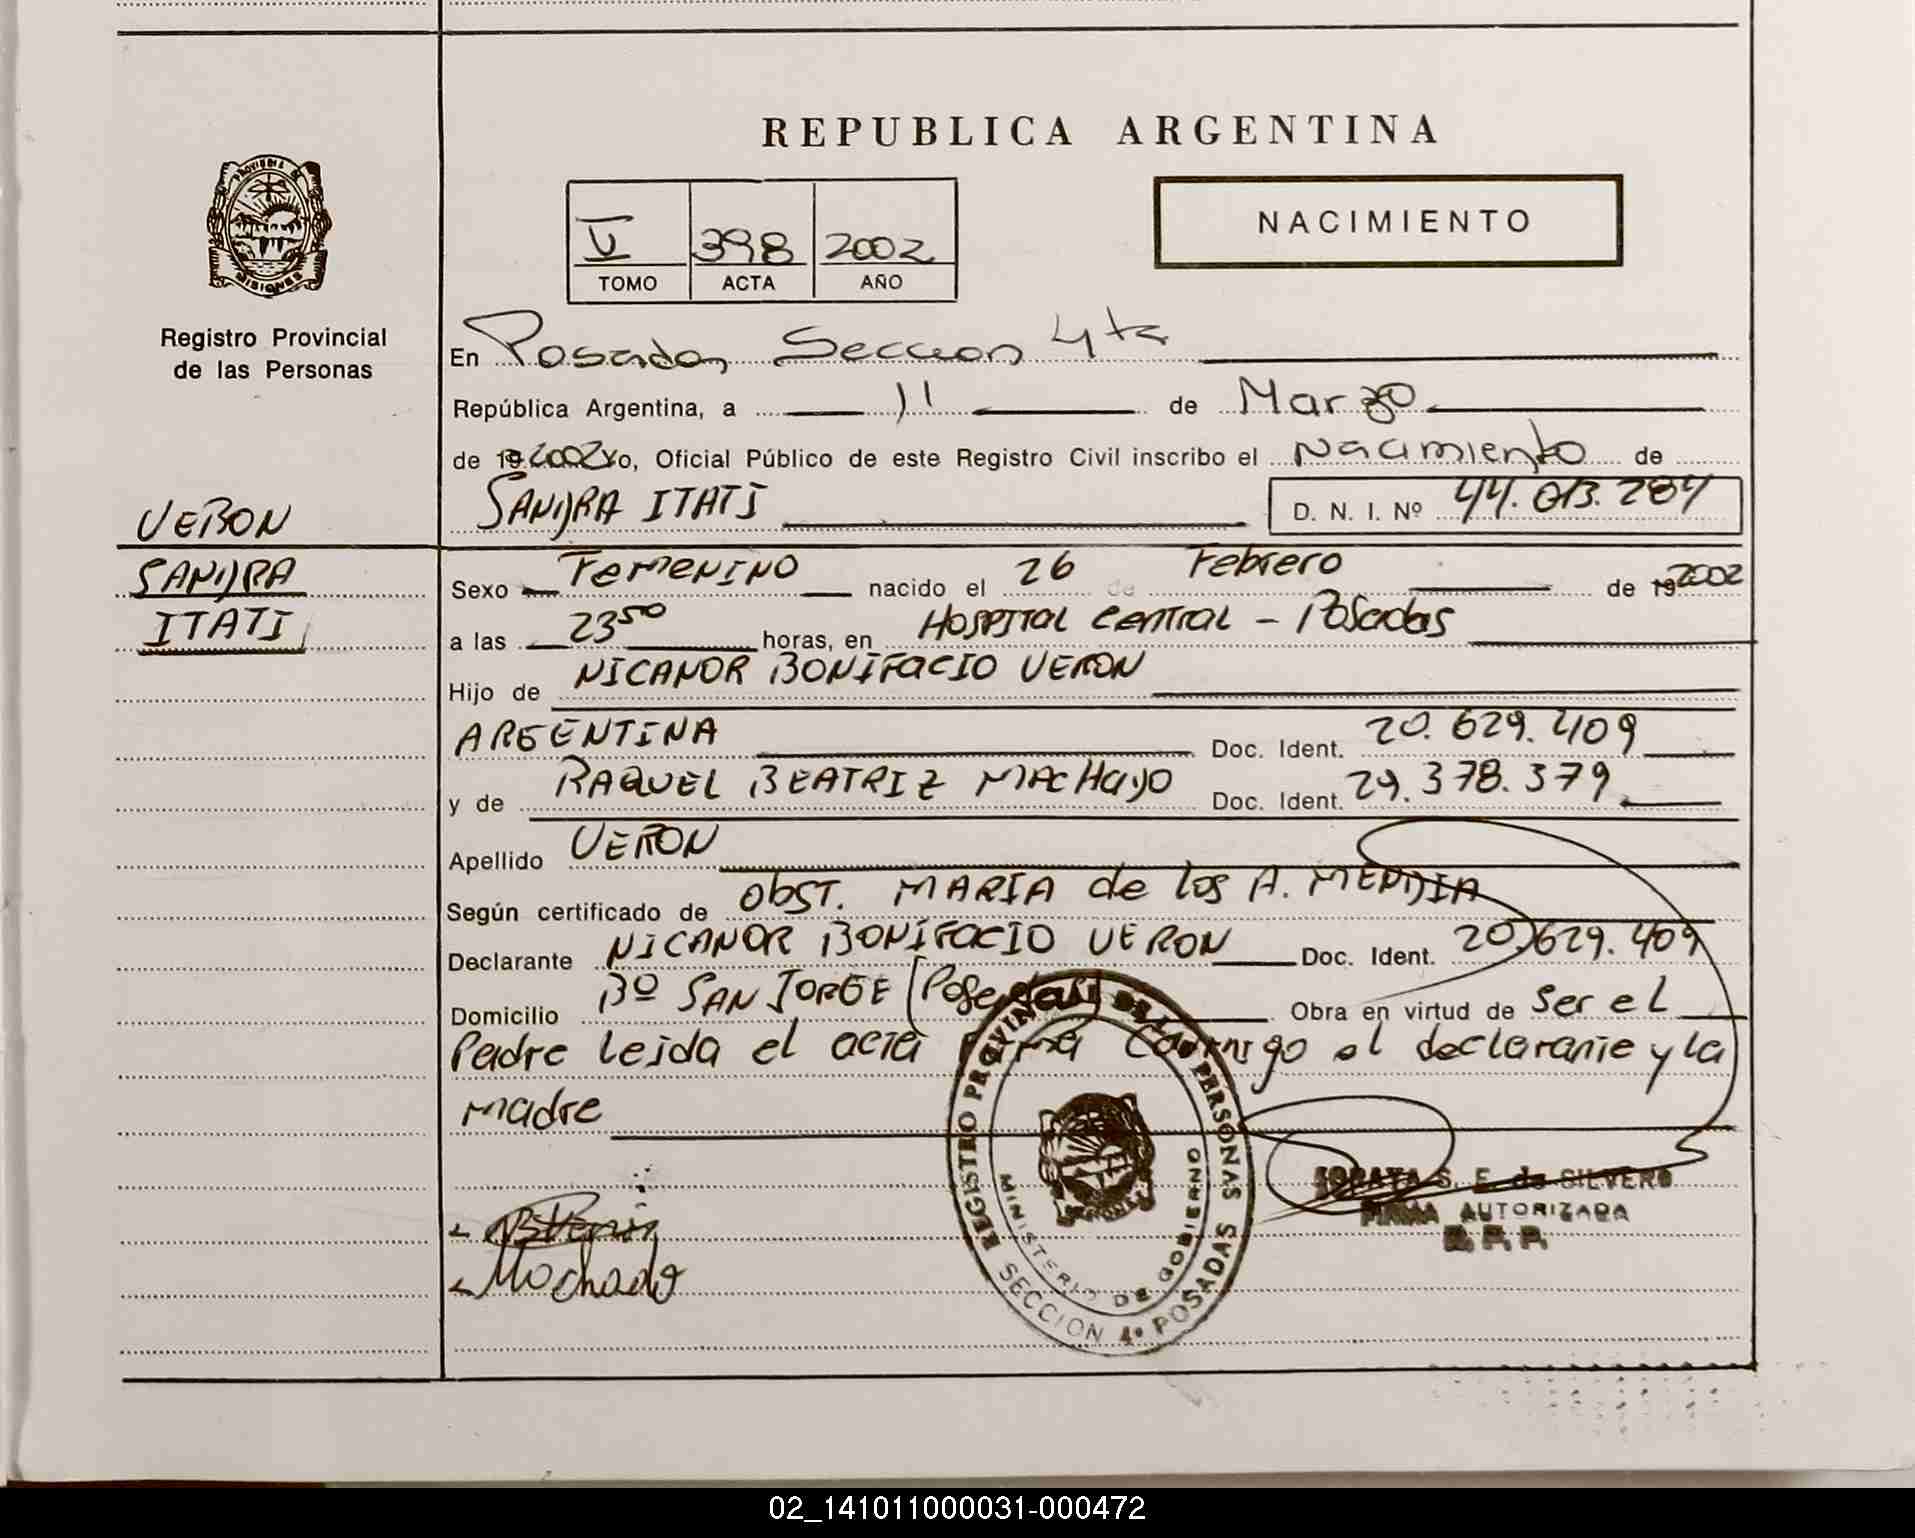 REPUBLICA ARGENTINA
PROVINCIA DE MISIONES
Registro Provincial
de las Personas
V 398 2002
TOMO ACTA AÑO
NACIMIENTO
En Posadas, Seccion 4ta
República Argentina, a 11 de Marzo
de 19 2002 Yo, Oficial Público de este Registro Civil inscribo el Nacimiento de
SANDRA ITATI D. N. I. Nº 44.013.284
VERON
SANDRA
ITATI
Sexo FEMENINO nacido el 26 de Febrero de 19 2002
a las 23 50 horas, en HOSPITAL CENTRAL - Posadas
Hijo de NICANOR BONIFACIO VERON
ARGENTINA Doc. Ident. 20.629.409
y de RAQUEL BEATRIZ MACHADO Doc. Ident. 29.378.379
Apellido VERON
Según certificado de OBST. MARIA de los A. MENDIA
Declarante NICANOR BONIFACIO VERON Doc. Ident. 20.629.409
Domicilio Bº SAN JORGE (Posadas) Obra en virtud de Ser el
Padre leida el acta firma Conmigo el declarante y la
madre
REGISTRO PROVINCIAL DE LAS PERSONAS
MINISTERIO DE GOBIERNO
SECCION 4ª POSADAS
S. E. de SILVERO
FIRMA AUTORIZADA
R. P. P.
Machado
02_141011000031-000472